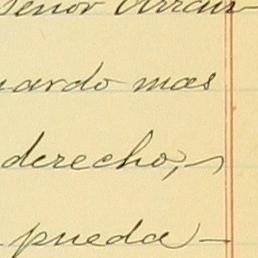 señor Arrau
uardo mas
derecho, -
pueda -